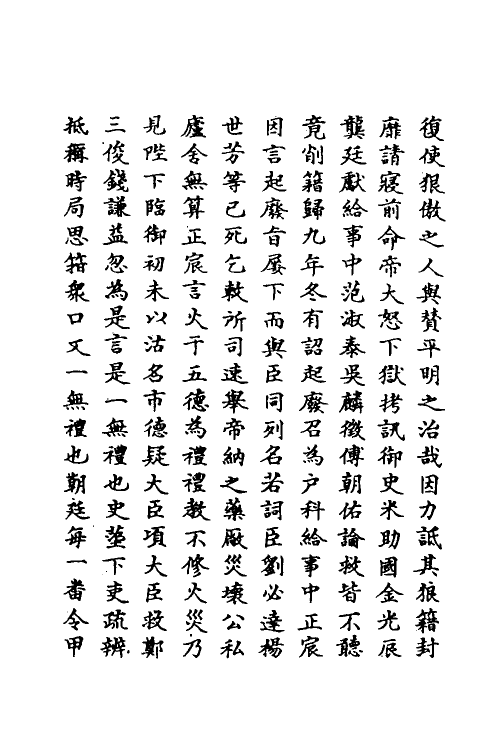 復使狠傲之人與贊平明之治哉因力詆其狼籍封
靡請寢前命帝大怒下獄拷訊御史米助國金光辰
龔廷獻給事中范淑泰吳麟徵傅朝佑論救皆不聽
竟削籍歸九年冬有詔起廢召為户科給事中正宸
因言起廢旨屢下而與臣同列名若詞臣劉必達楊
世芳等已死乞敕所司速舉帝納之藥厰災壊公私
廬舍無算正宸言火于五德為禮禮教不修火災乃
見陛下臨御初未以沽名市德疑大臣項大臣救鄭
三俊錢謙益忽為是言是一無禮也史䇄下吏疏辨
抵稱時局思箝衆口又一無禮也朝廷每一番令甲